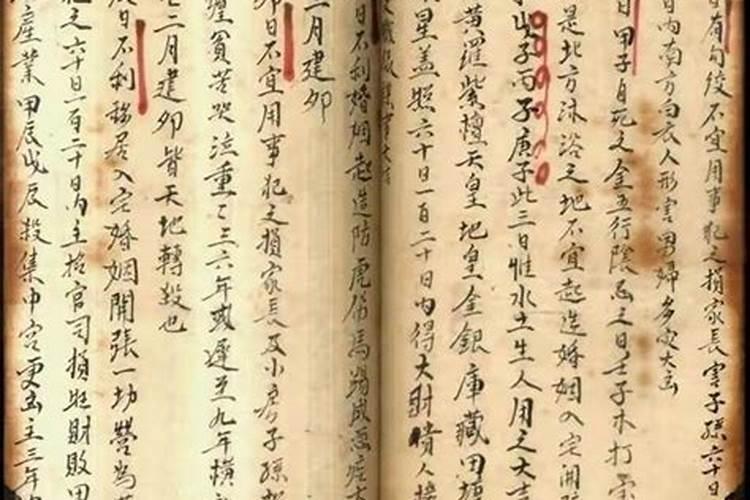 日有勾絞不宜用事犯之損家長害子孫六十日
日內南方白衣人形害男婦多灾大凶
日甲子自死之金五行陰忌之日壬子木打
是北方沐浴之地不宜起造婚姻入宅開
子戊子丙子庚子此三日惟水土生人用之大吉
黃羅紫檀天皇地皇金銀庫藏田塘
星蓋照六十日一百二十日內得大財貴人接
日不利婚姻起造防虎傷馬踢成惡疾
二月建卯
卯日不宜用事犯之損家長及小房子孫
纏貧苦哭泣重重三六年或遲至九年橫
二月建卯皆天地轉殺也
日不利移居入宅婚姻開張一切營為
犯之六十日一百二十日內主招官司損財敗田
產業甲辰戊辰殺集中宮更凶主三年